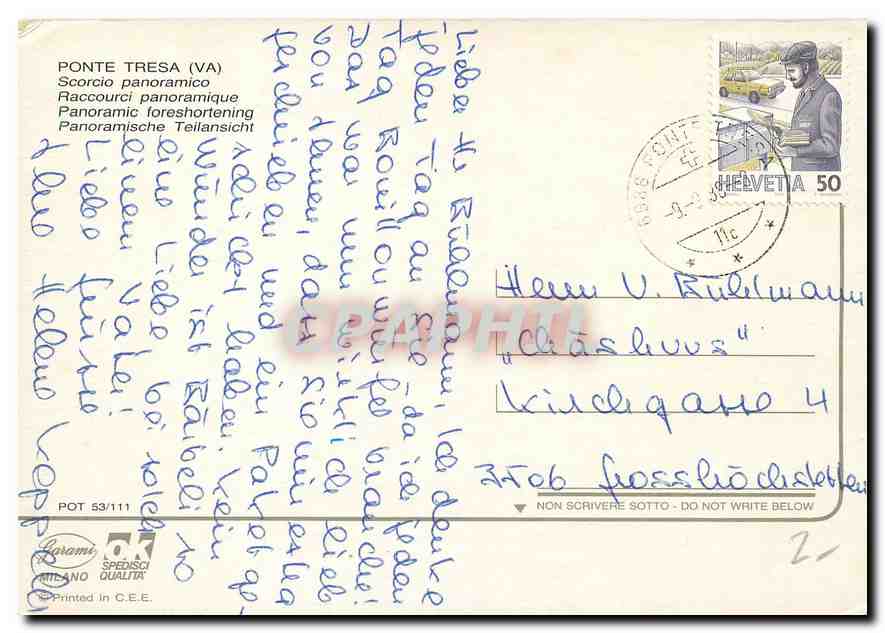 PONTE TRESA (VA)
Scorcio panoramico
Raccourci panoramique
Panoramic foreshortening
Panoramische Teilansicht
Lieber Hr Bühlmann, Ich denke
jeden Tag an Sie - da ich jeden
Tag Bouillonwürfel brauche!
Das war nun wirklich lieb
von Ihnen, dass Sie mir extra
geschrieben und ein Paket ge-
schickt haben. Kein
Wunder ist Bäbeli so
eine Liebe bei solch
einem Vater!
Liebe Grüsse
Ihre Helene
HELVETIA 50
6988 PONTE
11c
Herrn U. Bühlmann
„Chäshuus"
Kirchgasse 4
3506 Grosshöchstetten
NON SCRIVERE SOTTO - DO NOT WRITE BELOW
CPAPHIL
POT 53/111
Garami
MILANO
OK
SPEDISCI
QUALITÀ
© Printed in C.E.E.
2.-